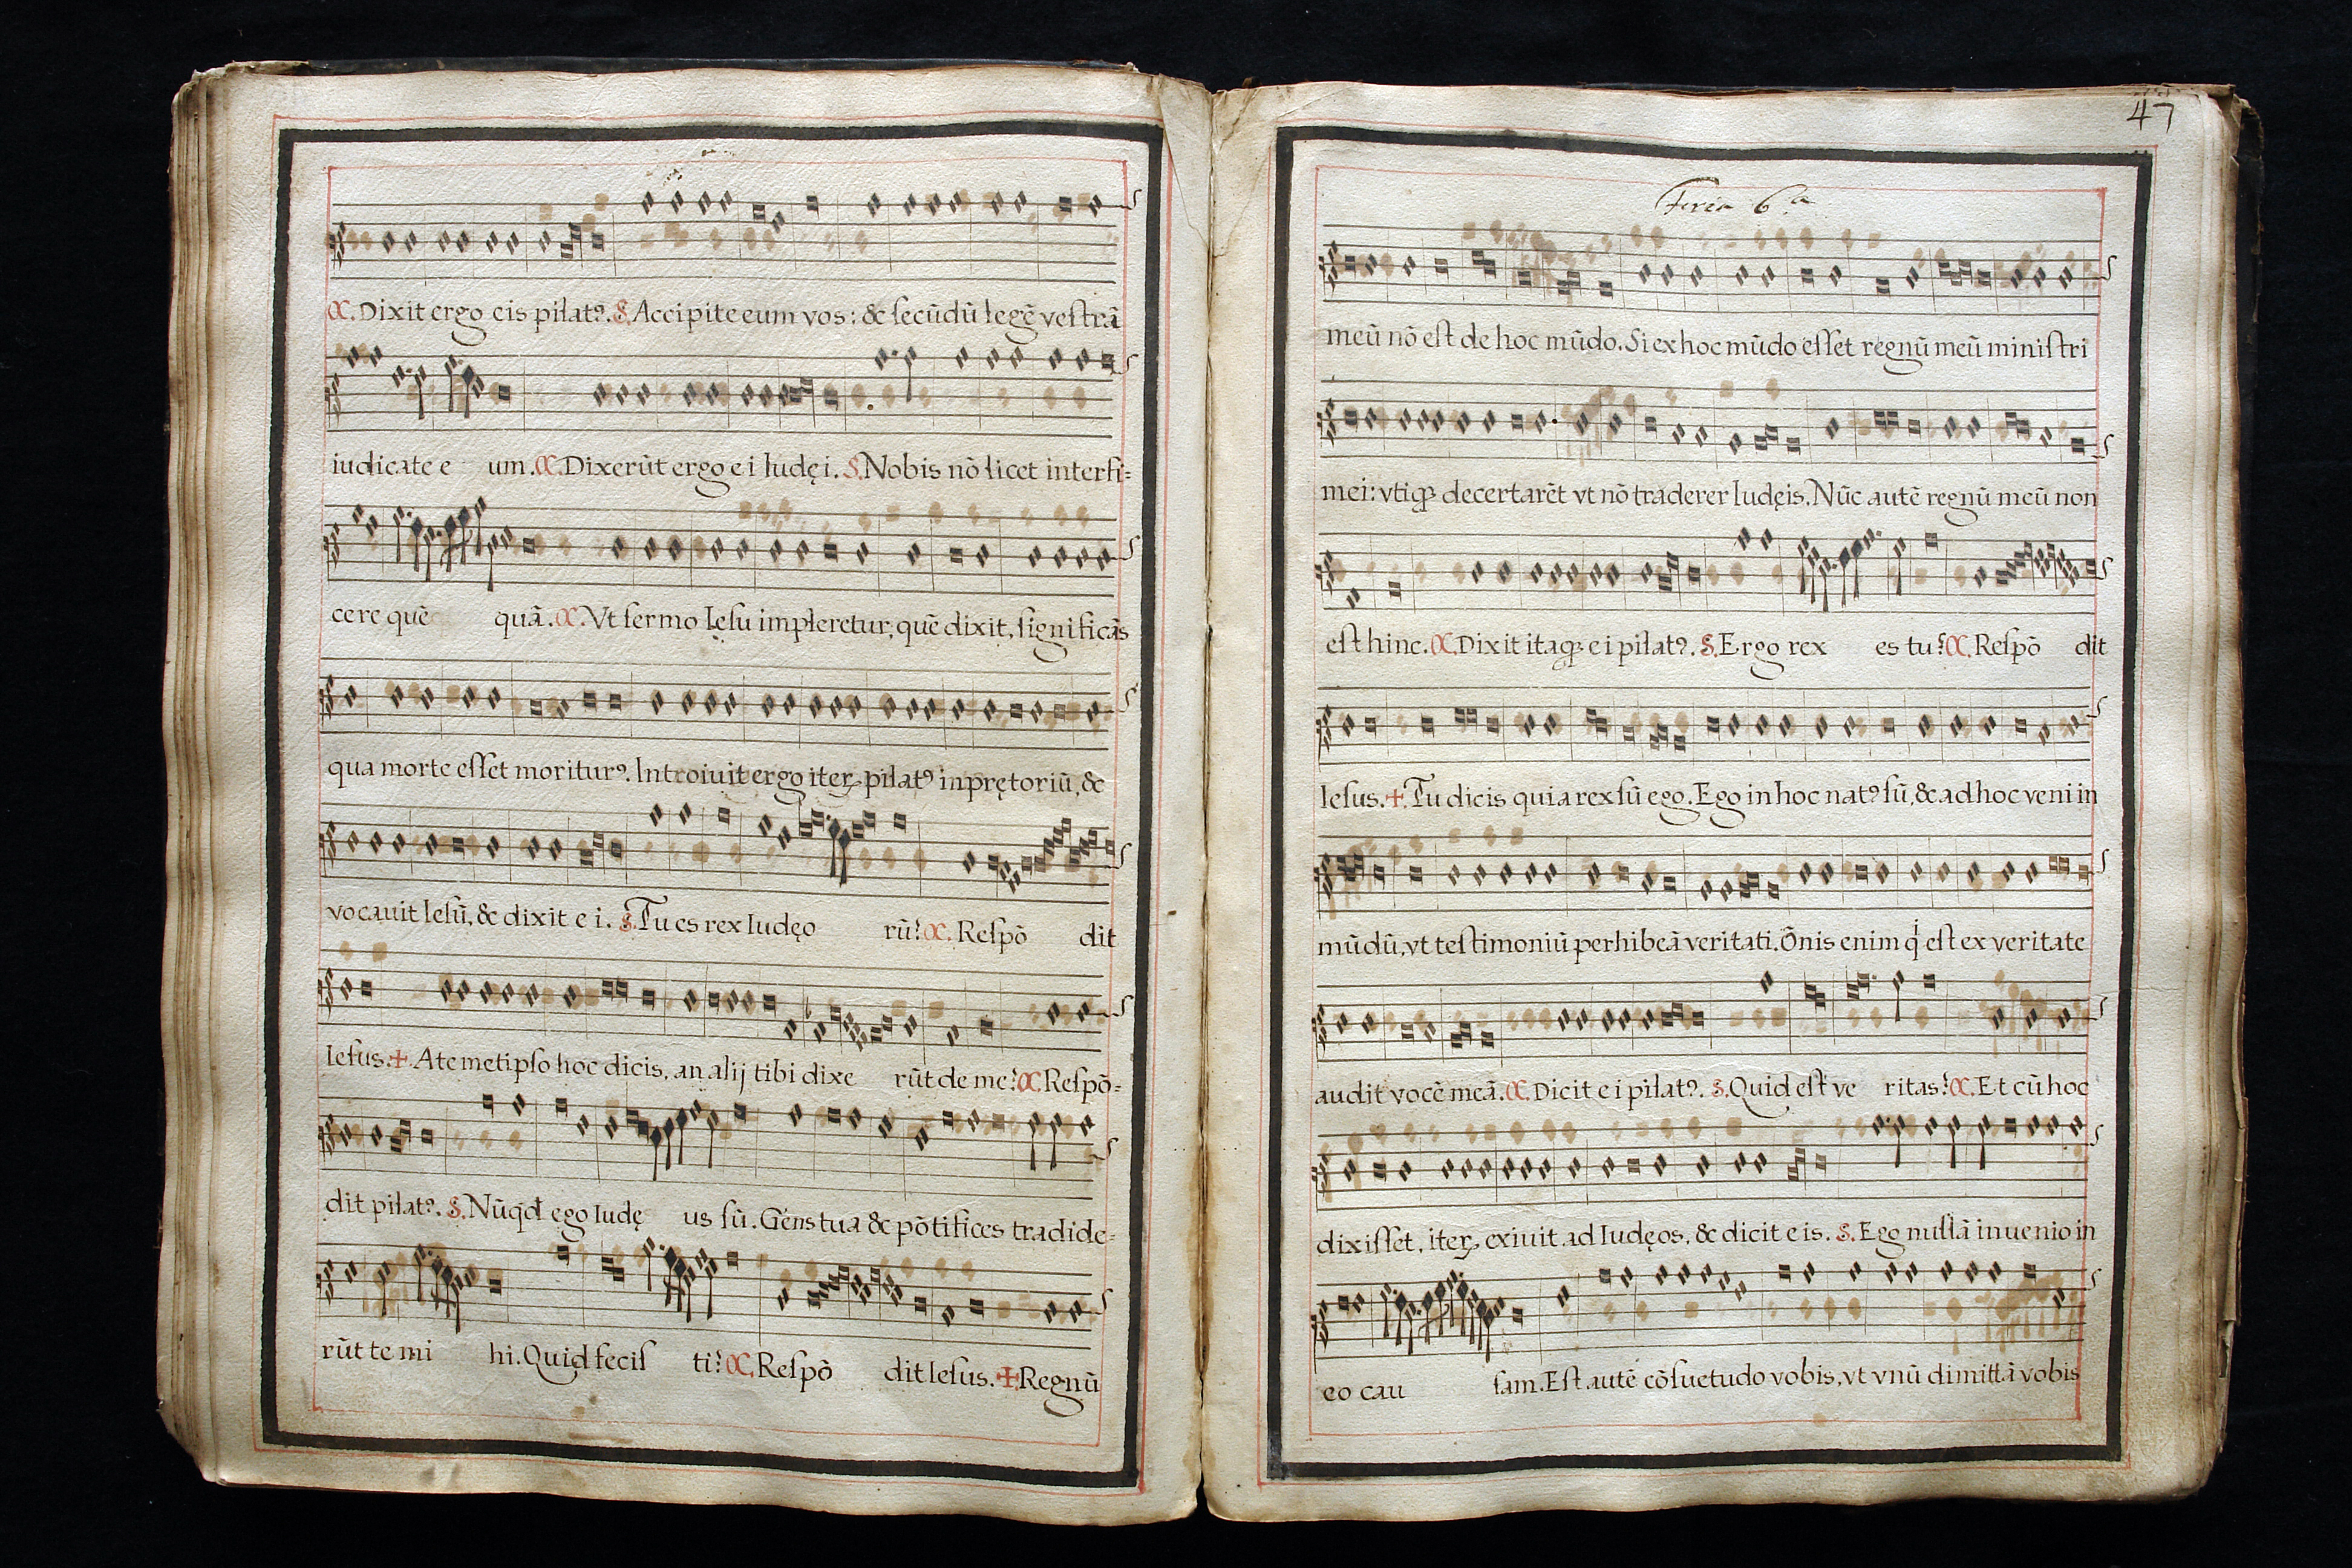 C. Dixit ergo eis pilatꝰ. S. Accipite eum vos: & secūdū legē vestrā
iudicate e um. C. Dixerūt ergo ei Iudęi. S. Nobis nō licet interfi=
cere quē quā. C. Vt sermo Iesu impleretur, quē dixit, significās
qua morte esset moriturꝰ. Introiuit ergo iteꝝ pilatꝰ in prętoriū, &
vocauit Iesū, & dixit e i. S. Tu es rex Iudęo rū? C. Respō dit
Iesus. + A temetipso hoc dicis, an alij tibi dixe rūt de me? C. Respō=
dit pilatꝰ. S. Nūqd ego Iudę us sū. Gens tua & pōtifices tradide=
rūt te mi hi. Quid fecis ti? C. Respō dit Iesus. + Regnū
47
Feria 6.a
meū nō est de hoc mūdo. Si ex hoc mūdo esset regnū meū ministri
mei: vtiqꝫ decertarēt vt nō traderer Iudęis. Nūc autē regnū meū non
est hinc. C. Dixit itaqꝫ ei pilatꝰ. S. Ergo rex es tu? C. Respō dit
Iesus. + Tu dicis quia rex sū ego. Ego in hoc natꝰ sū, & ad hoc veni in
mūdū, vt testimoniū perhibeā veritati. Ōnis enim q̇ est ex veritate
audit vocē meā. C. Dicit ei pilatꝰ. S. Quid est ve ritas? C. Et cū hoc
dixisset, iteꝝ exiuit ad Iudęos, & dicit eis. S. Ego nullā inuenio in
eo cau sam. Est autē cōsuetudo vobis, vt vnū dimittā vobis